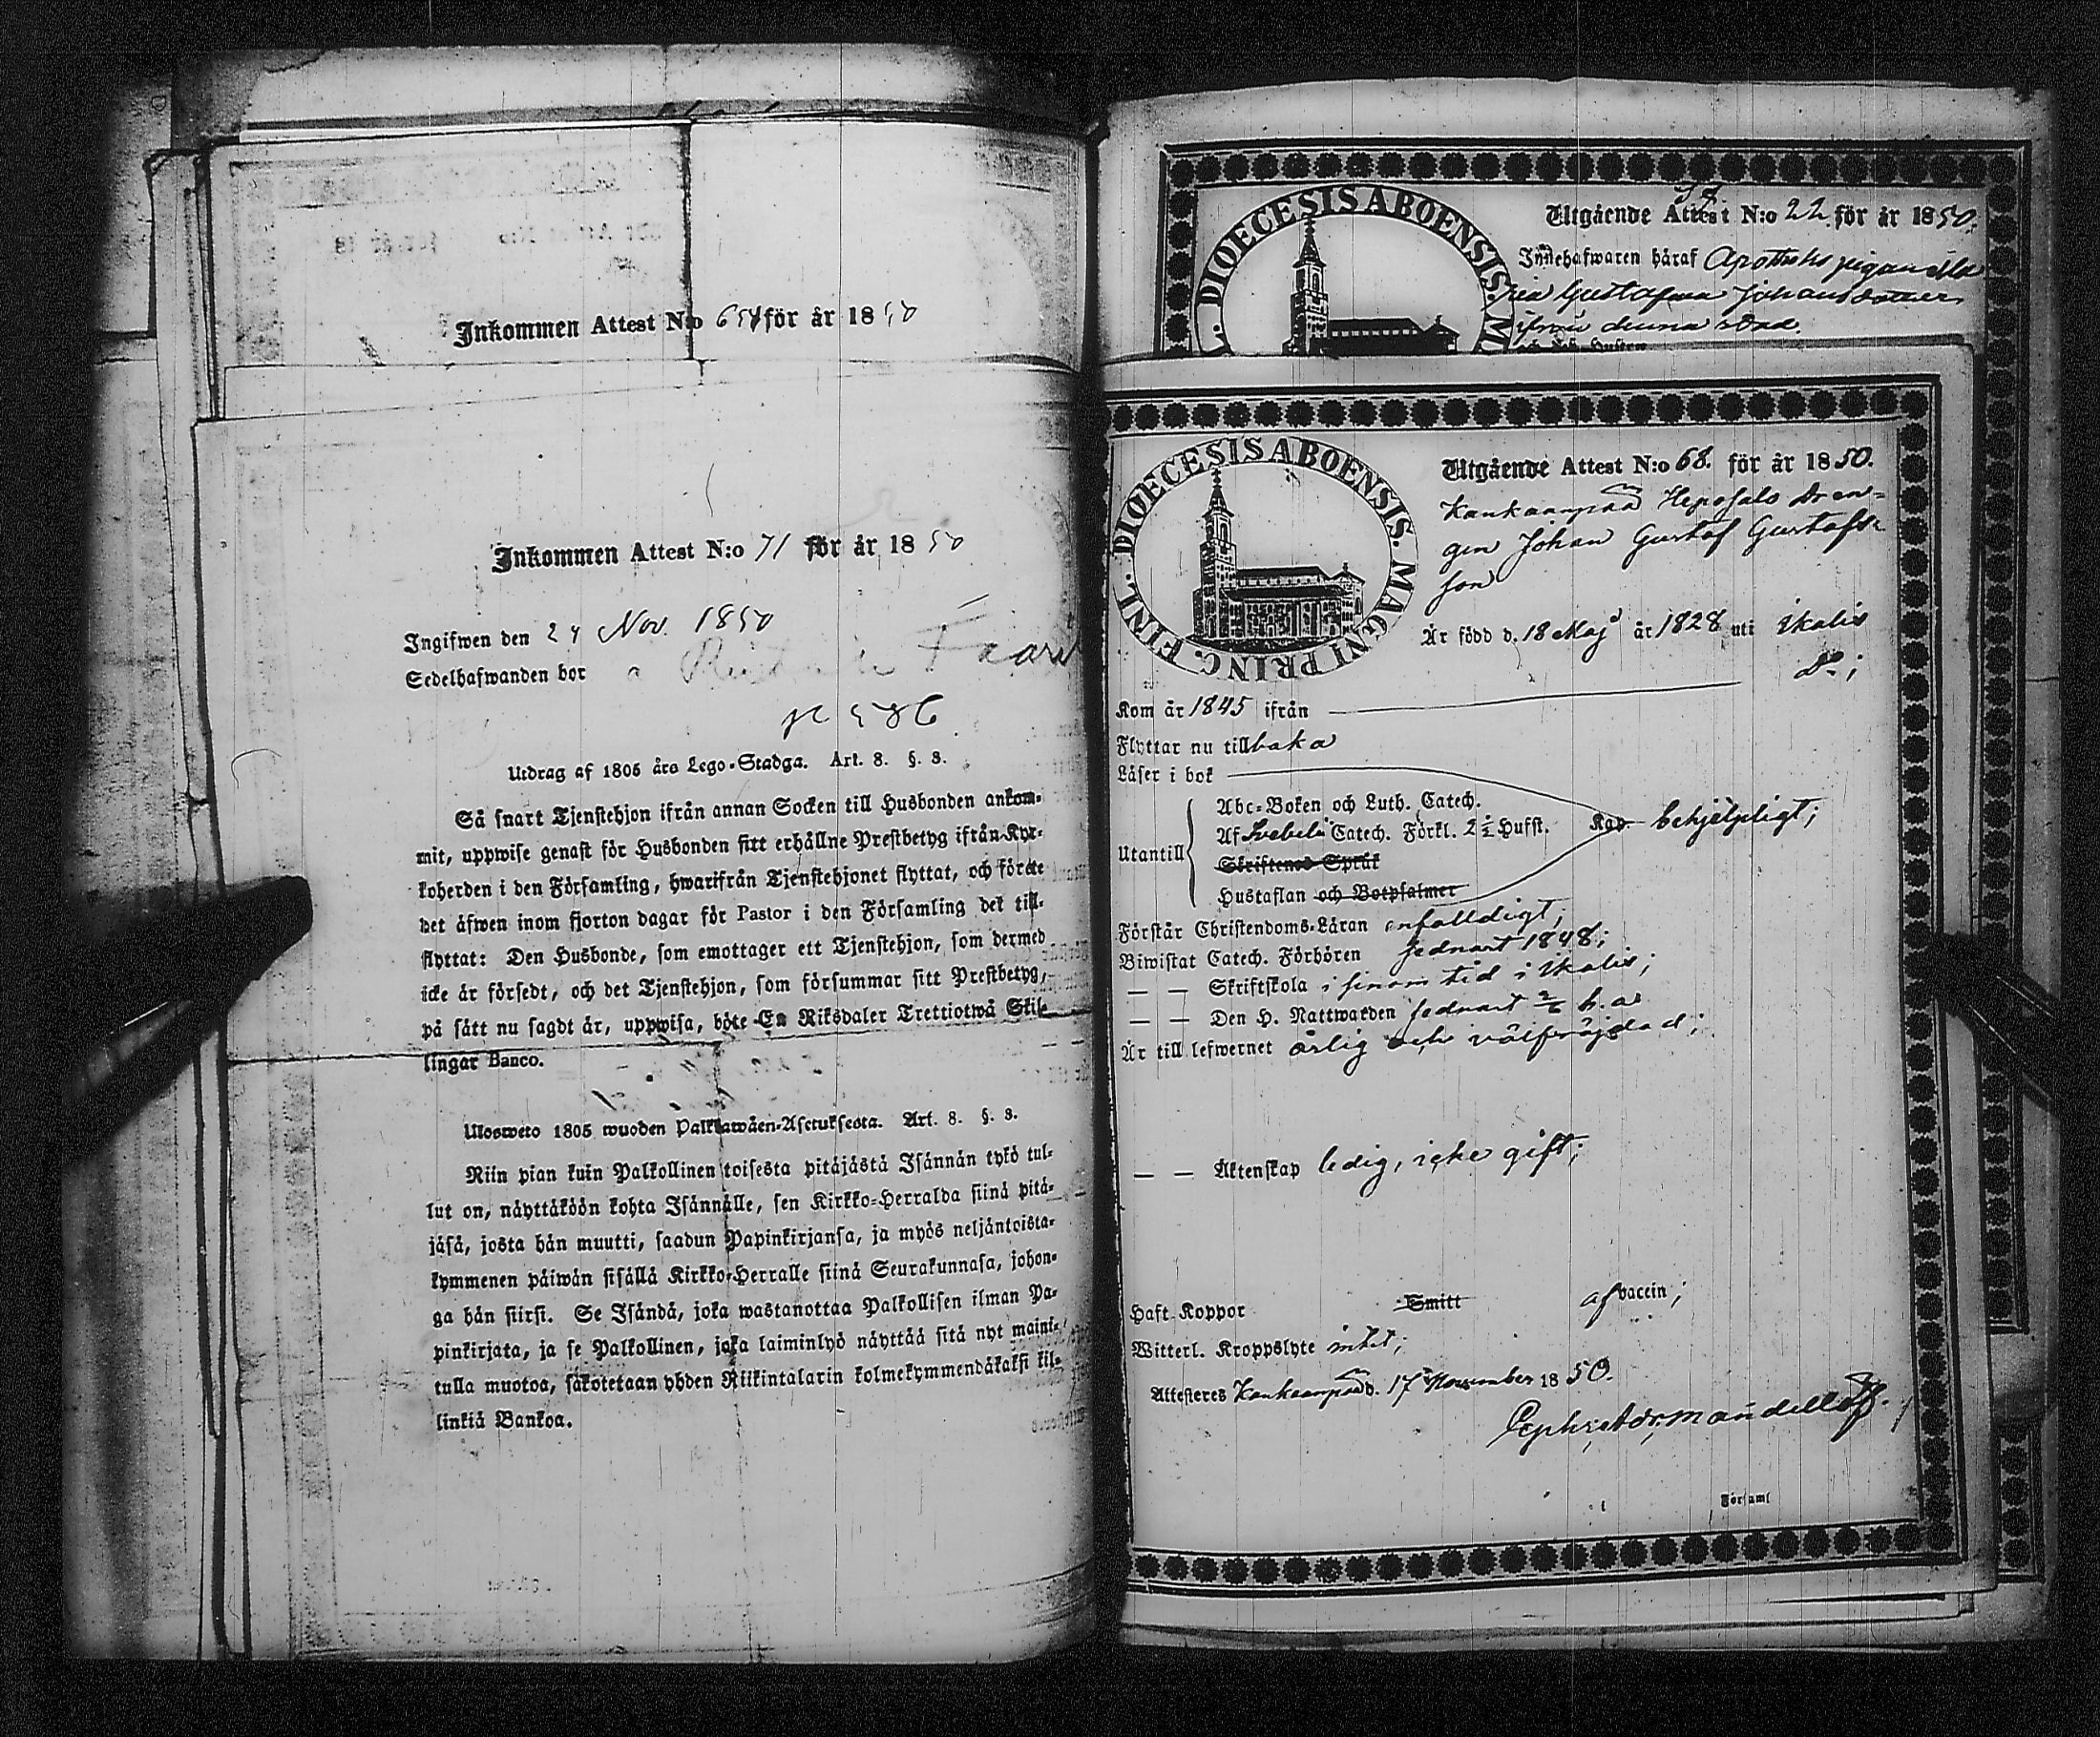 Inkommen Attest N:o 654 för år 1850
Inkommen Attest N:o 71 för år 1850
Ingifwen den 24 Nov. 1850
Sedelhafwanden bor
p 586
Utdrag af 1805 års Lego-Stadga. Art. 8. §. 3.
Så snart Tjenstehjon ifrån annan Socken till Husbonden ankom-
mit, uppwise genast för Husbonden sitt erhållne Prestbetyg ifrån Kyr-
koherden i den Församling, hwarifrån Tjenstehjonet flyttat, och förete
det äfwen inom fjorton dagar för Pastor i den Församling det till-
flyttat: Den Husbonde, som emottager ett Tjenstehjon, som dermed
icke är försedt, och det Tjenstehjon, som försummar sitt Prestbetyg,
på sätt nu sagdt är, uppwisa, böte En Riksdaler Trettiotwå Skil-
lingar Banco.
Uloswето 1805 wuoden Palkkawäen-Asetuksesta. Art. 8. §. 3.
Niin pian kuin Palkollinen toisesta pitäjästä Isännän tykö tul-
lut on, näyttäköön kohta Isännälle, sen Kirkko-Herralda siinä pitä-
jäsä, josta hän muutti, saadun Papinkirjansa, ja myös neljäntoista-
kymmenen päiwän sisällä Kirkko-Herralle siinä Seurakunnasa, johon-
ga hän siirsi. Se Isändä, joka wastanottaa Palkollisen ilman Pa-
pinkirjata, ja se Palkollinen, joka laiminlyö näyttää sitä nyt maini-
tulla muotoa, sakotetaan yhden Riikintalarin kolmekymmendäkaksi kil-
linkiä Bankoa.
DIOECESIS ABOENSIS. M
Utgående Attest N:o 22 för år 1850.
Innehafwaren häraf Apotheks pigan
Gustafwa Johansdotter
ifrån denna stad
DIOECESIS ABOENSIS. MAGNI PRINC. FINL.
Utgående Attest N:o 68. för år 1850.
Kankaanpää Heposalo Dren-
gen Johan Gustaf Gustafs-
son
Är född d. 18 Maj år 1828 uti Ikalis
Kom år 1845 ifrån D:o;
Flyttar nu tillbaka
Läser i bok
Abc-Boken och Luth. Catech.
Utantill Af Svebelii Catech. Förkl. 2½ Hufst. Kap. behjelpligt;
Skriftenes Språk
Hustaflan och Botpsalmer
Förstår Christendoms-Läran enfalldigt;
Biwistat Catech. Förhören sednast 1848;
— — Skriftskola i sinom tid i Ikalis;
— — Den H. Nattwarden sednast 2/6 h. a
Är till lefwernet ärlig och välfräjdad;
— — Äktenskap ledig, icke gift;
Haft Koppor Smitt af vaccin;
Witterl. Kroppslyte intet;
Attesteres Kankaanpää d. 17 November 1850.
Församl